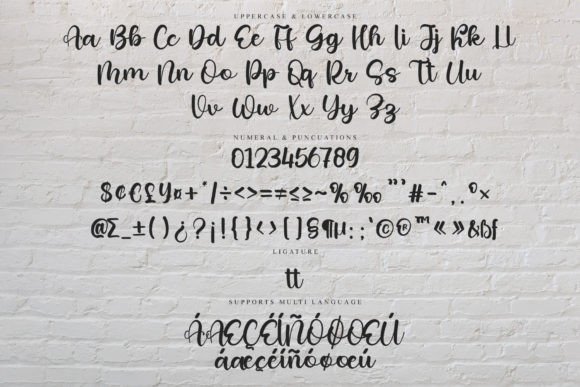 UPPERCASE & LOWERCASE
Aa Bb Cc Dd Ee Ff Gg Hh Ii Jj Kk Ll
Mm Nn Oo Pp Qq Rr Ss Tt Uu
Vv Ww Xx Yy Zz
NUMERAL & PUNCUATIONS
0123456789
$¢€£¥¤+*/÷<>=≠≤≥~%‰"'#-^,.º×
@Σ_±()¿?¡!{}‹›[]§¶µ:;'©®™«»&ßƒ
LIGATURE
tt
SUPPORTS MULTI LANGUAGE
ÁÆÇÉÍÑÓØŒÚ
áæçéíñóøœú